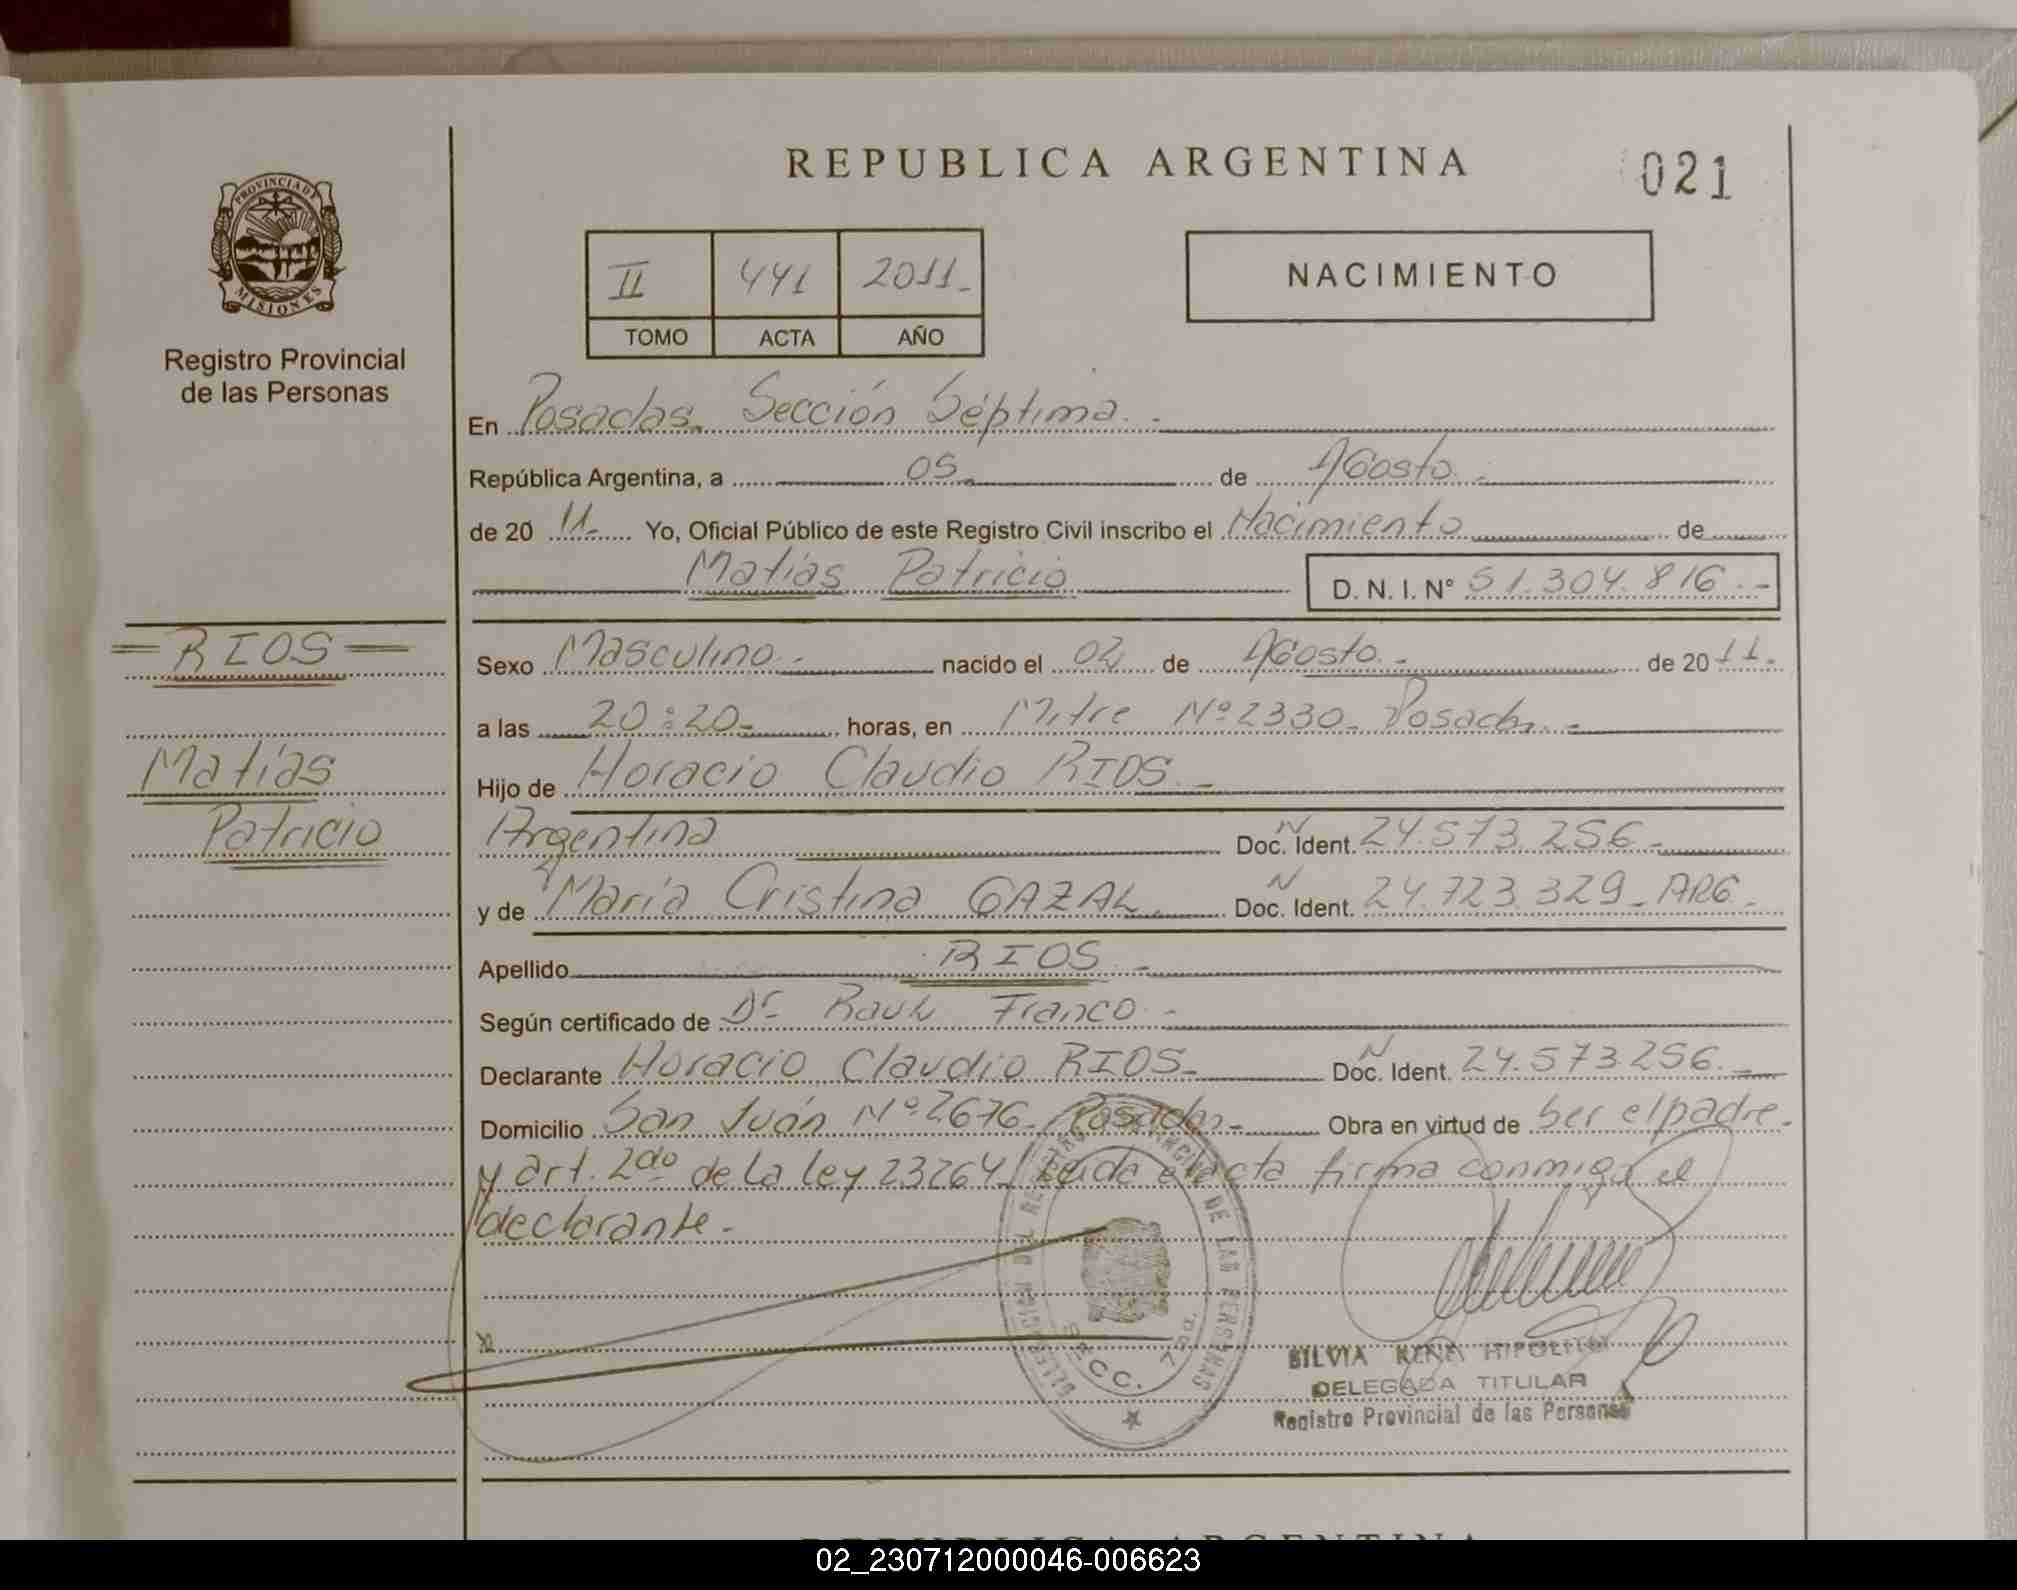 REPUBLICA ARGENTINA
021
PROVINCIA DE
MISIONES
Registro Provincial
de las Personas
II 441 2011-
TOMO ACTA AÑO
NACIMIENTO
En Posadas. Sección Séptima.-
República Argentina, a 05 de Agosto.-
de 20 11- Yo, Oficial Público de este Registro Civil inscribo el Nacimiento de
Matías Patricio D. N. I. N° 51.304.816.-
=RIOS=
Sexo Masculino.- nacido el 02 de Agosto.- de 20 11.-
a las 20:20- horas, en Mitre Nº 2330- Posadas.-
Matías
Hijo de Horacio Claudio RIOS.-
Patricio
Argentina Doc. Ident. 24.573.256-
y de María Cristina GAZAL. Doc. Ident. 24.723.329- ARG.
Apellido RIOS.-
Según certificado de Dr Raul Franco.-
Declarante Horacio Claudio RIOS- Doc. Ident. 24.573.256.-
Domicilio San Juán Nº 2676- Posadas- Obra en virtud de ser el padre-
y art. 2do de la ley 23264. Leida el acta firma conmigo el
declarante.-
SECC. 7
SILVIA HIPOLITO
DELEGADA TITULAR
Registro Provincial de las Personas
REPUBLICA ARGENTINA
02_230712000046-006623